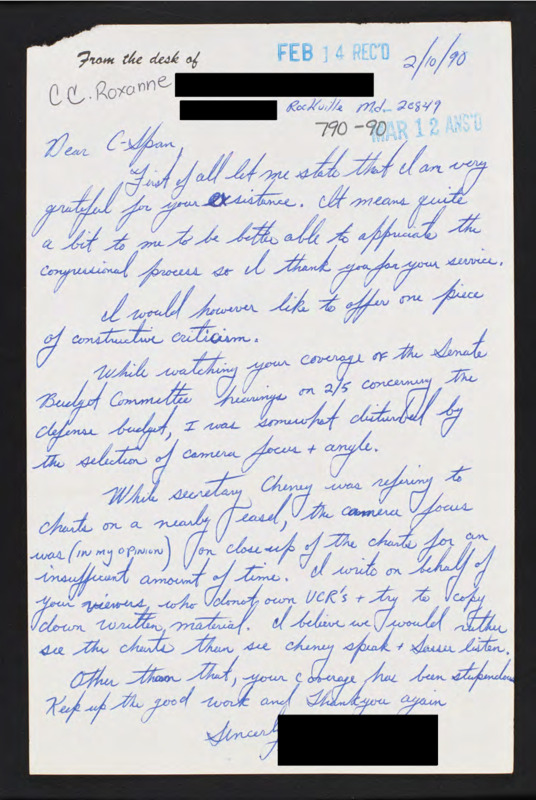 From the desk of
FEB 14 REC'D
2/10/90
CC. Roxanne
Rockville Md. 20849
790-90
MAR 12 ANS'D
Dear C-Span,
First of all let me state that I am very
grateful for your exsistance. It means quite
a bit to me to be better able to appreciate the
congressional process so I thank you for your service.
I would however like to offer one piece
of constructive criticism.
While watching your coverage of the Senate
Budget Committee hearings on 2/5 concerning the
defense budget, I was somewhat disturbed by
the selection of camera focus + angle.
While secretary Cheney was refering to
charts on a nearby easel, the camera focus
was (IN MY OPINION) on close-up of the charts for an
insufficient amount of time. I write on behalf of
your viewers who donot own VCR's + try to copy
down written material. I believe we would rather
see the charts than see cheney speak + Sasser listen.
Other than that, your coverage has been stupendous
Keep up the good work and Thankyou again
Sincerly